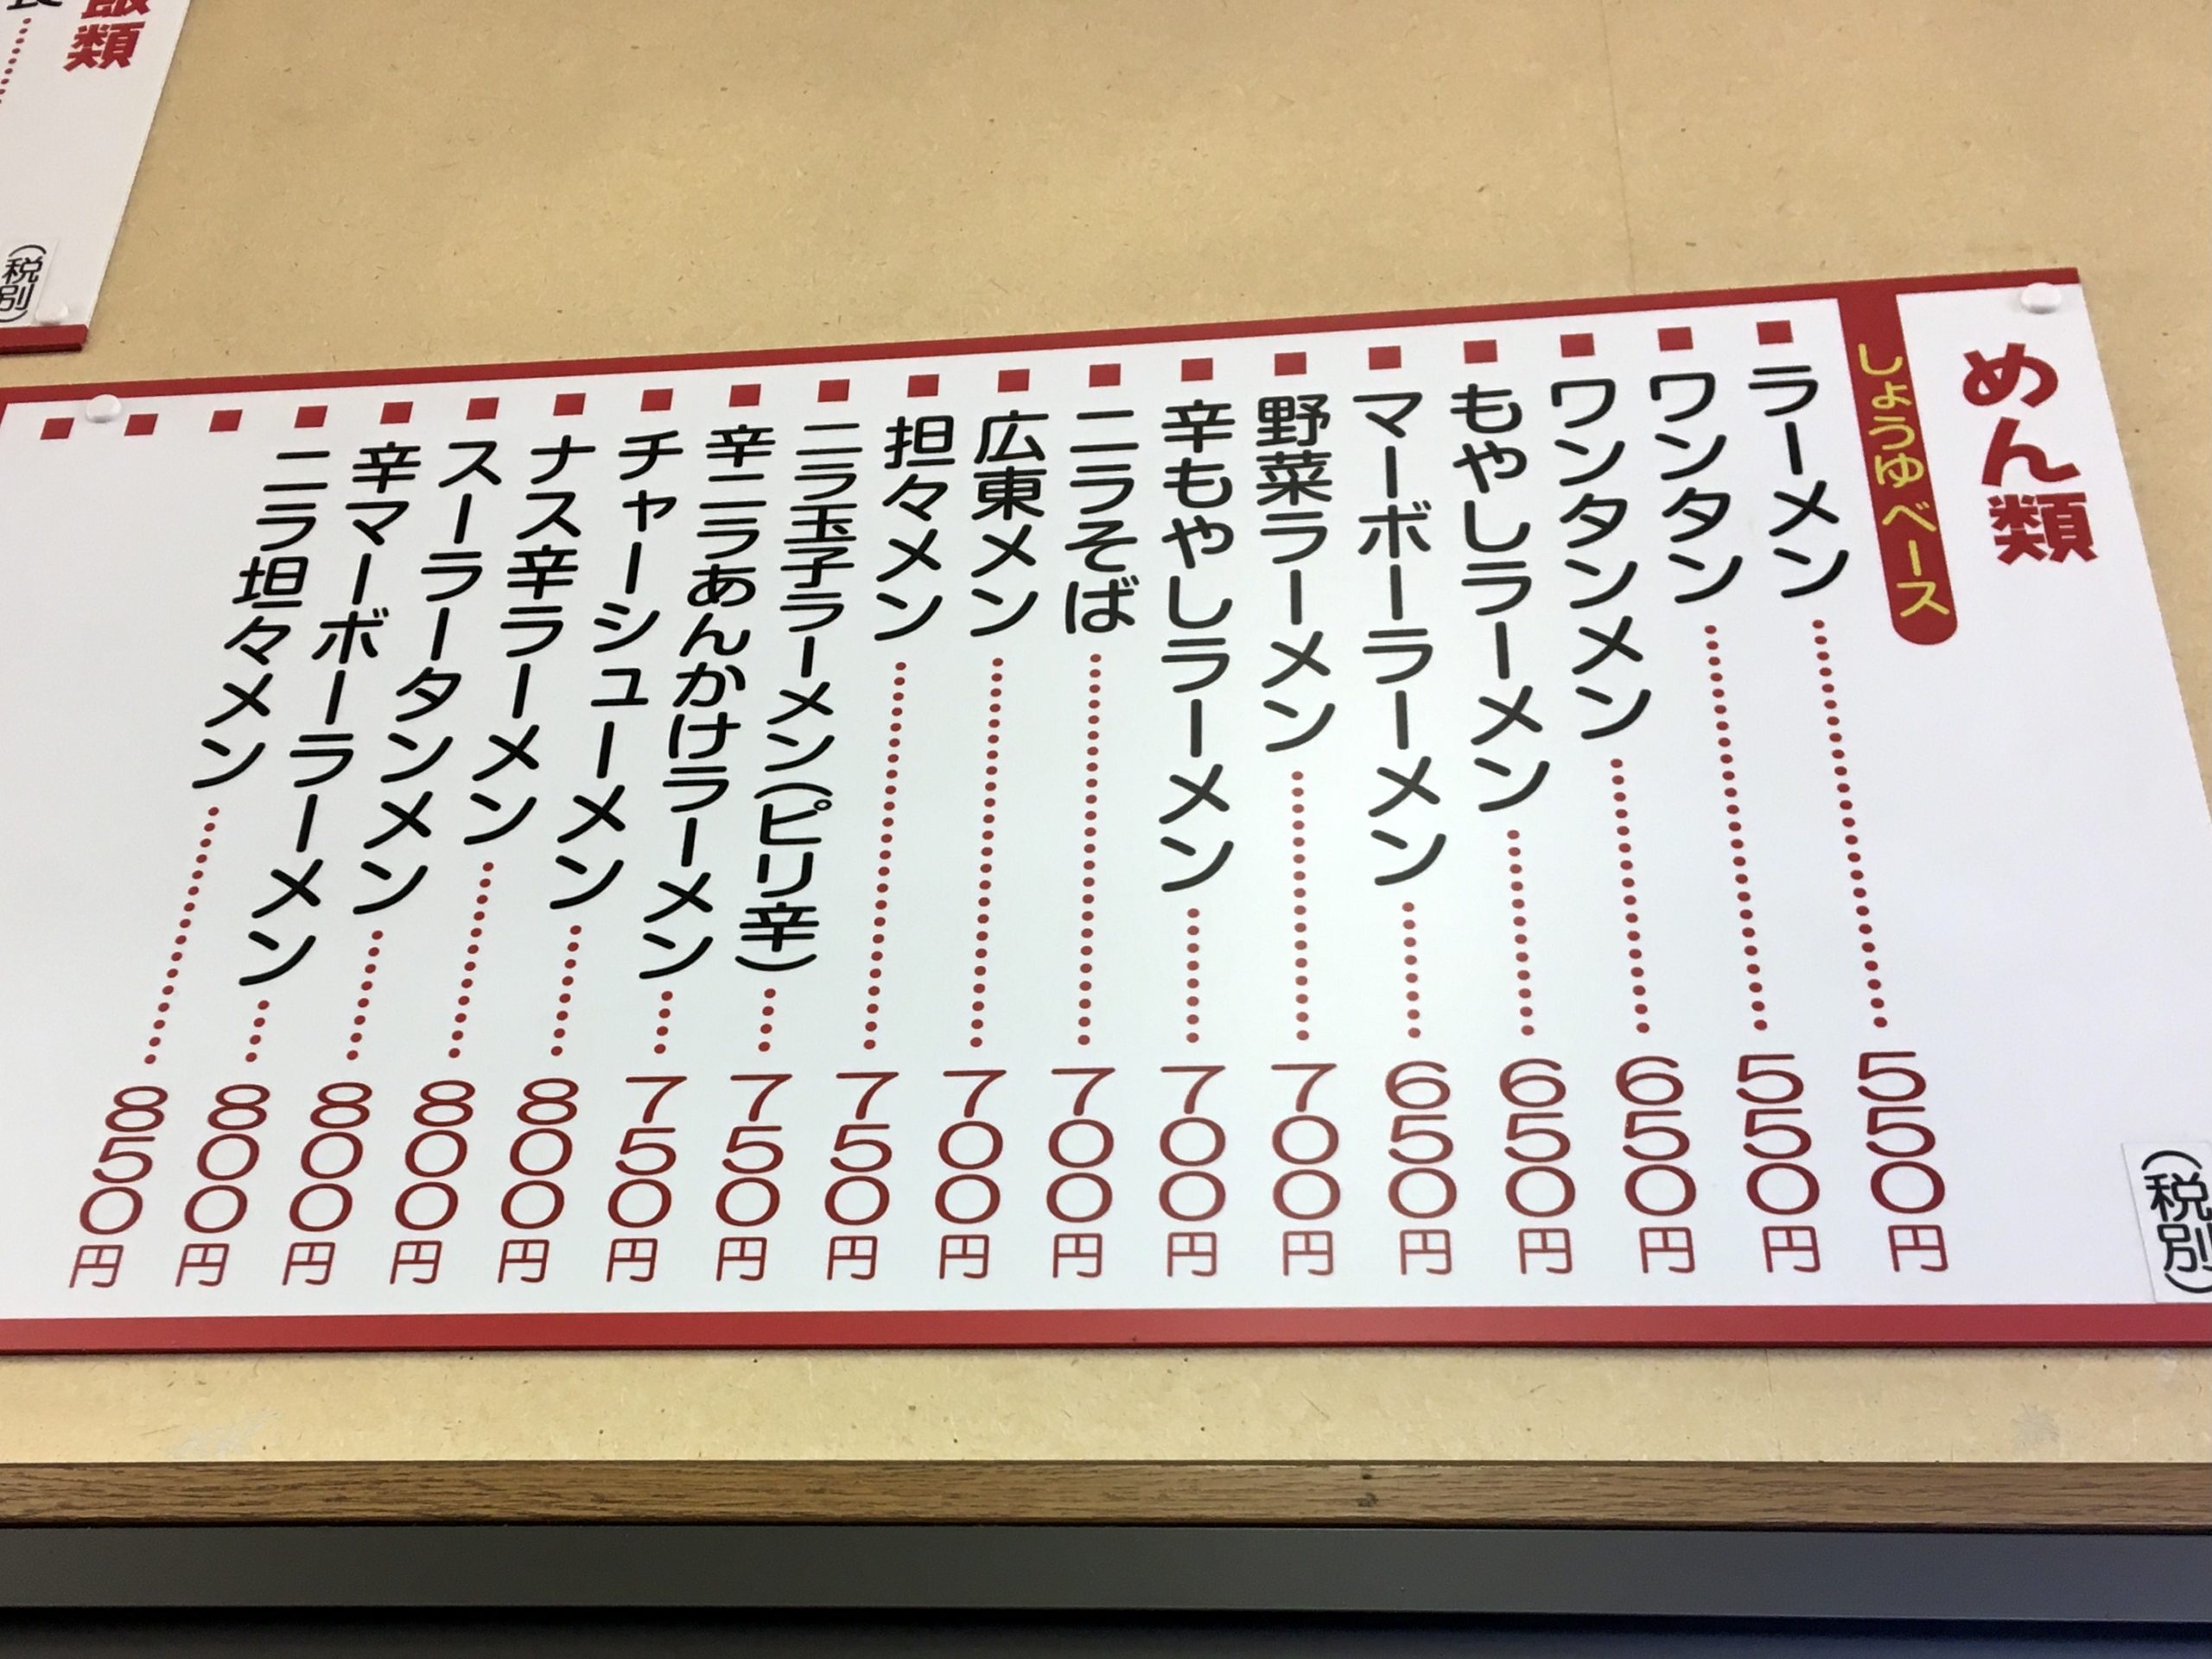 めん類
しょうゆベース
(税別)
ラーメン……550円
ワンタン……550円
ワンタンメン……650円
もやしラーメン……650円
マーボーラーメン……650円
野菜ラーメン……700円
辛もやしラーメン……700円
ニラそば……700円
広東メン……700円
担々メン……750円
ニラ玉子ラーメン(ピリ辛)……750円
辛ニラあんかけラーメン……750円
チャーシューメン……800円
ナス辛ラーメン……800円
スーラータンメン……800円
辛マーボーラーメン……800円
ニラ坦々メン……850円
飯類
(税別)